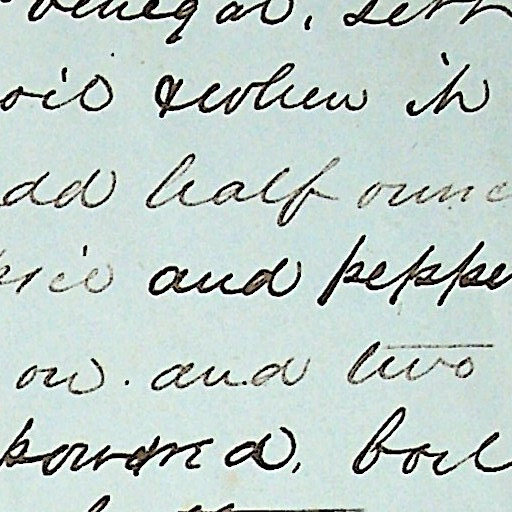 venegar, sett
oil & when it
add half ounc
and peppe
on. and two
pound, boil